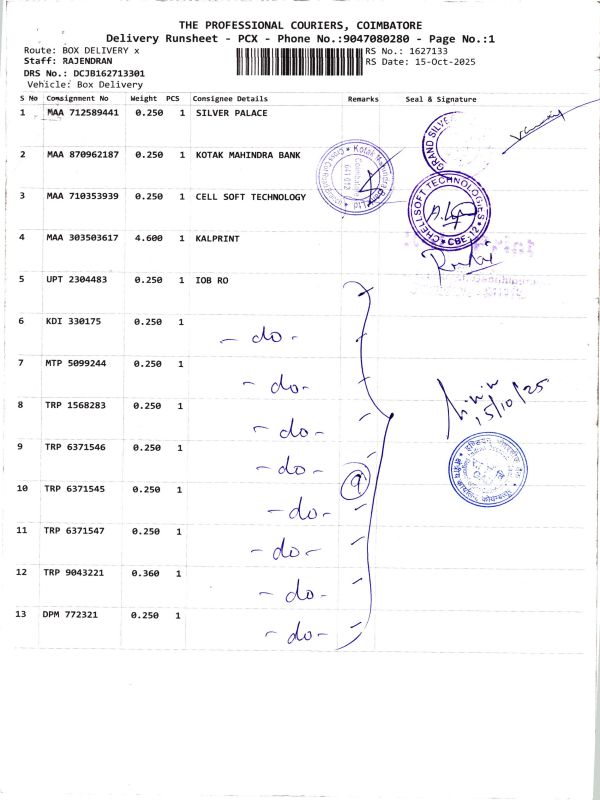 THE PROFESSIONAL COURIERS, COIMBATORE
Delivery Runsheet - PCX - Phone No.:9047080280 - Page No.:1
Route: BOX DELIVERY x
RS No.: 1627133
Staff: RAJENDRAN
RS Date: 15-Oct-2025
DRS No.: DCJB162713301
Vehicle: Box Delivery
S No Consignment No Weight PCS Consignee Details Remarks Seal & Signature
1 MAA 712589441 0.250 1 SILVER PALACE
GRAND SILVER
2 MAA 870962187 0.250 1 KOTAK MAHINDRA BANK
Kotak Mahindra
641012
3 MAA 710353939 0.250 1 CELL SOFT TECHNOLOGY
CHELLSOFT TECHNOLOGIES
CBE-12
4 MAA 303503617 4.600 1 KALPRINT
5 UPT 2304483 0.250 1 IOB RO
6 KDI 330175 0.250 1 - do -
7 MTP 5099244 0.250 1 - do -
8 TRP 1568283 0.250 1 - do -
15/10/25
9 TRP 6371546 0.250 1 - do -
9
10 TRP 6371545 0.250 1 - do -
11 TRP 6371547 0.250 1 - do -
12 TRP 9043221 0.360 1 - do -
13 DPM 772321 0.250 1 - do -